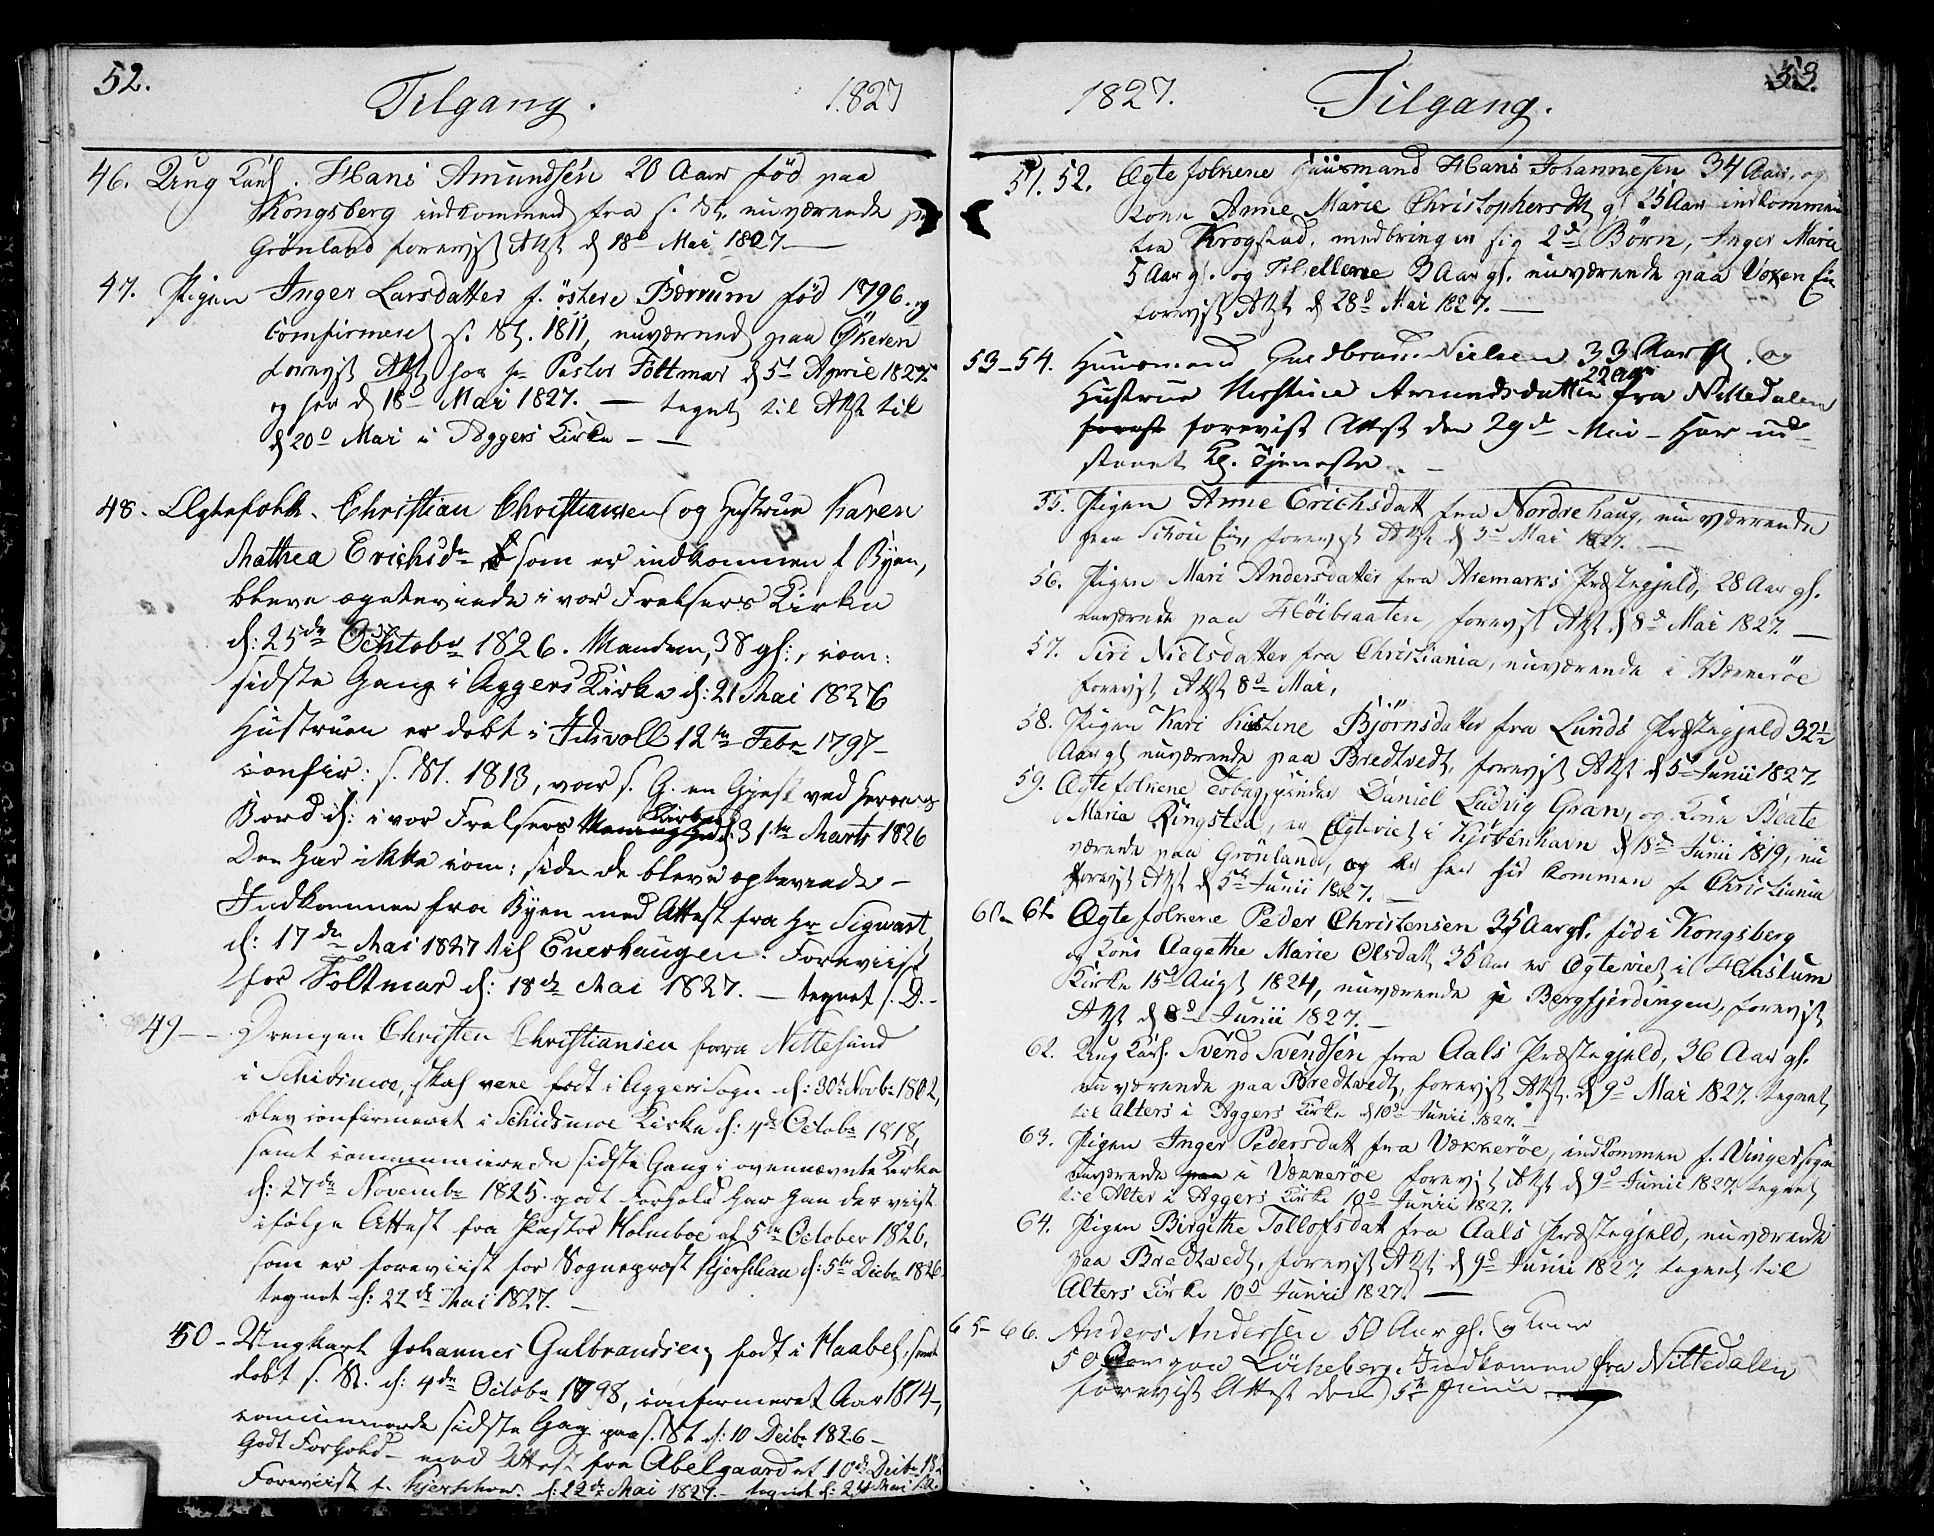 52.
Tilgang.
1827
46. Ung Karl. Hans Amundsen 20 Aar fød paa
Kongsberg indkommend fra s. St. nuværende paa
Grønland forevist Att d 18d Mai 1827. —
47. Pigen Inger Larsdatter f. östere Bærum fød 1796. og
Confirmeret s. St. 1811, nuværend paa Økeren
forevist Att hos hr Pastor Foltmar d 5t April 1827
og her d 18d Mai 1827. — tegnet til Att til
d 20d Mai i Aggers Kirke — —
48. Ægtefolk. Christian Christiansen og Hustrue Karen
Mathea Erichsdr som er indkommen f Byen,
bleve ægteviede i vor Frelsers Kirke
d: 25de Octobr 1826. Manden, 38 gl:, com:
sidste Gang i Aggers Kirke d: 21 Mai 1826
Hustruen er døbt i Idsvoll 12te Febr 1797—
confir: s. St. 1813, var s. G. en Gjest ved Herrens
Bord d: i vor Frelsers Menighed Kirke d: 31te Marts 1826
Den har ikke com: siden de bleve ægteviede —
Indkommen fra Byen med Attest fra Hr Sigwart
d: 17de Mai 1827 til Enerhaugen. Foreviist
for Foltmar d: 18de Mai 1827. — tegnet s. D. —
49 — Drengen Christen Christiansen fra Nittesund
i Schidsmoe, skal være født i Aggers Sogn d: 30te Novbr 1802,
blev confirmeret i Schidsmoe Kirke d: 4de Octobr 1818,
samt communicerede sidste Gang i ovennævnte Kirke
d: 27de Novembr 1825. godt Forhold har han der viist
ifølge Attest fra Pastor Holmboe af 5te October 1826,
som er foreviist for Sogneprest Kjerschau d: 5te Decbr 1826.
tegnet d: 22de Mai 1827. —
50 — Ungkarl Johannes Gulbrandsen født i Haabøl, samt
døbt s. St. d: 4de Octobr 1798, confirmeret Aar 1814—,
comunicerede sidste Gag paa s. St d: 10 Decbr 1826—
Godt Forhold — med Attest fra Abelgaard af 10de Decbr 18
Foreviist f. Kjerschow. d: 22de Mai 1827. — tegnet d: 24 Mai s. A.
1827.
Tilgang.
53.
51. 52. Ægtefolkene Huusmand Hans Johannesen 34 Aar, og
Kone Anne Marie Christophersdtt gl 25 Aar indkommen
fra Krogstad, medbringer sig 2de Børn, Inger Marie
5 Aar gl. og Hellene 3 Aar gl. nuværende paa Voxen Eie
forevist Att d 28d Mai 1827. —
53—54. Huusmand Guldbrand Nielsen 33 Aar gl. og
Hustrue Kirstine Amundsdatter 22 Aar fra Nittedalen
forest forevist Attest den 29d Mai — Har ud-
staaet Kl. Tjeneste. —
55. Pigen Anne Erichsdatt fra Nordrehaug, nuværende
paa Schøie Eie, forevist Att d 3d Mai 1827. —
56. Pigen Mari Andersdatter fra Aremarks Præstegjeld, 28 Aar gl.
nuværende paa Høibraaten, forevist Att d 8d Mai 1827. —
57. Siri Nielsdatter fra Christiania, nuværende i Vækkerøe
forevist Att 8d Mai,
58. Pigen Kari Kistine Björnsdatter fra Lunds Præstegjeld 32½
Aar gl nuværende paa Bredtvedt, forevist Att d 5d Junii 1827.
59. Ægtefolkene Tobagspinder Daniel Ludvig Gran, og Kone Beate
Maria Ringsted, er Ægteviet i Kjøbenhavn d 18de Junii 1819, nu
værende paa Grönland, og er her hid kommen fr Christiania
forevist Att d 5te Junii 1827. —
60— 61. Ægtefolkene Peder Christensen 35 Aar gl. fød i Kongsberg
og Kone Aagethe Marie Olsdatt 35 Aar er Ægteviet i Haslum
Kirke 15d Augt 1824, nuværende i Bergfjerdingen, forevist
Att d 8d Junii 1827. —
62. Ung Karl. Svend Svendsen fra Aals Præstegjeld, 36 Aar gl.
nuværende paa Bredtvedt, forevist Att. d 9d Mai 1827. tegnet
til Alters i Aggers Kirke d 10d Junii 1827. —
63. Pigen Inger Pedersdatt fra Vækkerøe, indkommen f. Vinger sogn
nuværende paa i Vækkerøe forevist Att d 9d Junii 1827. tegnet
til Alter i Aggers Kirke 10d Junii 1827.
64. Pigen Birgithe Tollofsdatt fra Aals Præstegjeld, nuværende
paa Bredtvedt, forevist Att d 9d Junii 1827 tegnet til
Alters Kirke 10d Junii 1827. —
65—66. Anders Andersen 50 Aar gl. og Kone
50 Aar paa Löcheberg. Indkomen fra Nittedalen
forevist Attest den 5te Junii —